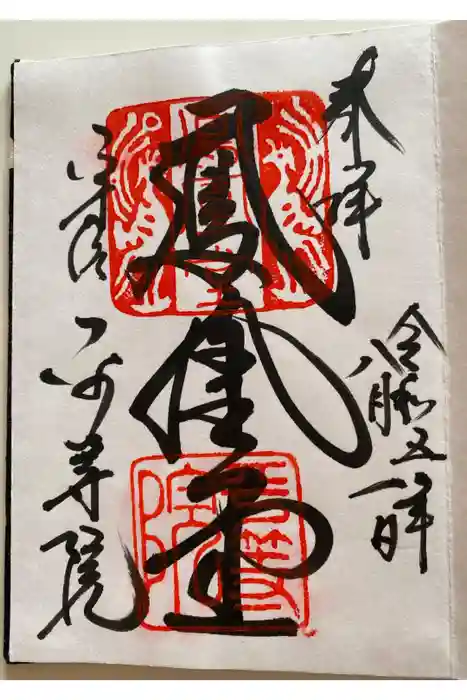 奉拝
令和五年
八月一日
鳳凰堂
平等院